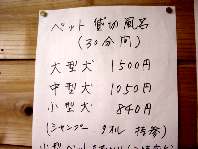 ペット貸切風呂
(30分間)
大型犬 1500円
中型犬 1050円
小型犬 840円
(シャンプー タオル 持参)
小型ペット